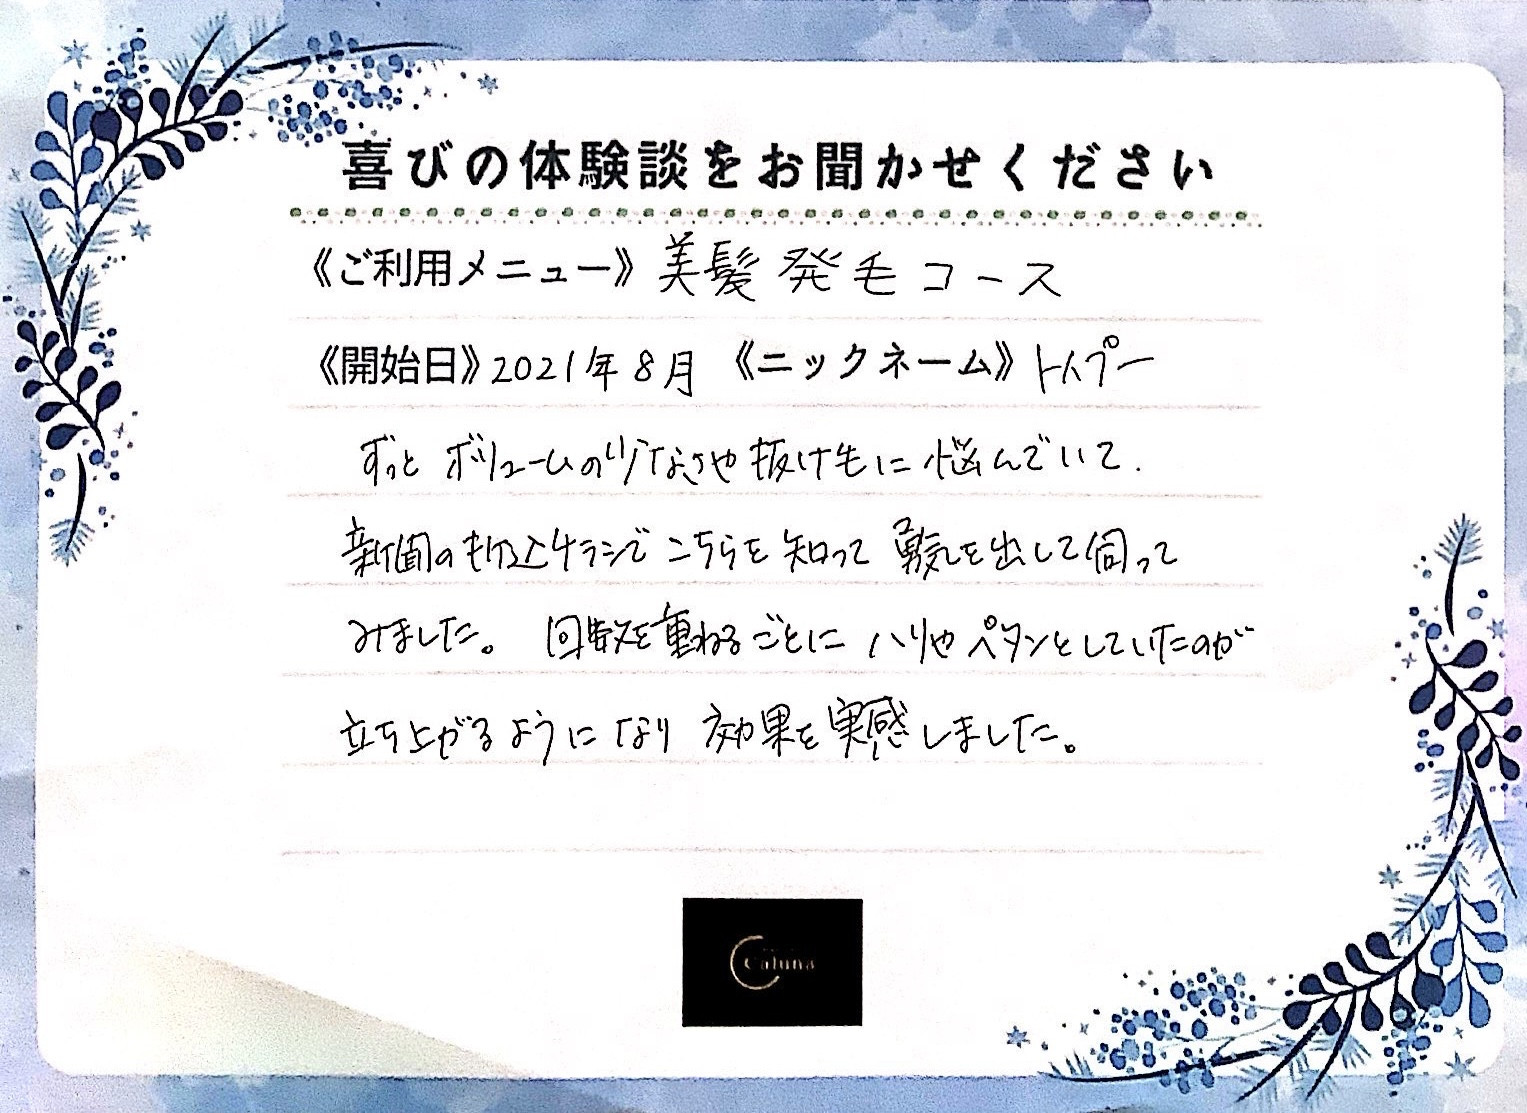 喜びの体験談をお聞かせください
《ご利用メニュー》美髪発毛コース
《開始日》2021年8月 《ニックネーム》トイプー
ずっとボリュームの少なさや抜け毛に悩んでいて.
新聞の折込チラシでこちらを知って勇気を出して伺って
みました。回数を重ねるごとにハリやペタンとしていたのが
立ち上がるようになり効果を実感しました。
Caluna